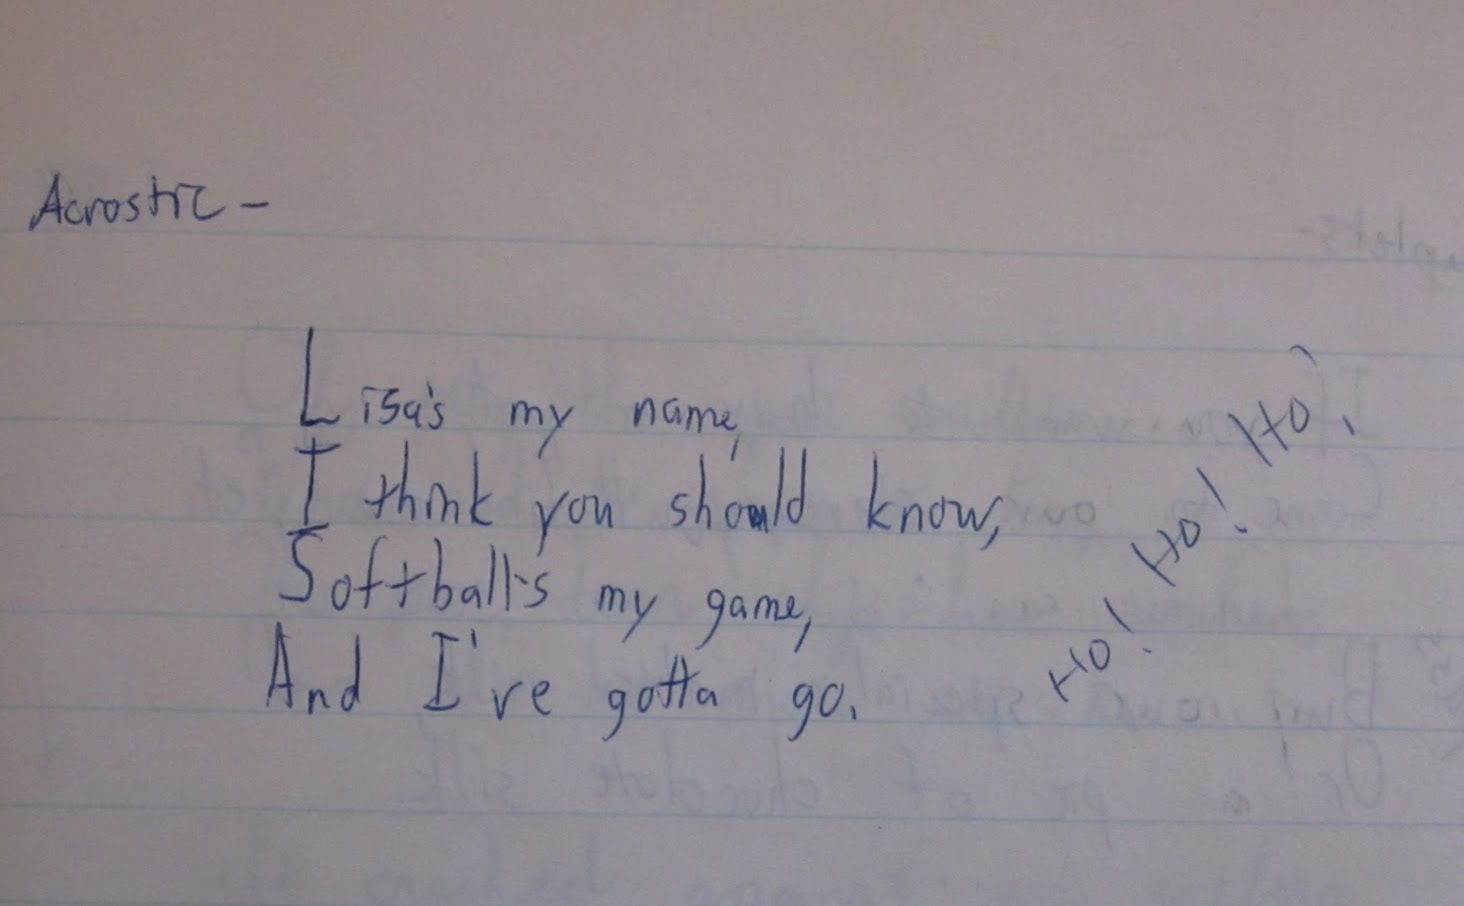 Acrostic -
Lisa's my name,
I think you should know,
Softball's my game,
And I've gotta go.
Ho! Ho! Ho!